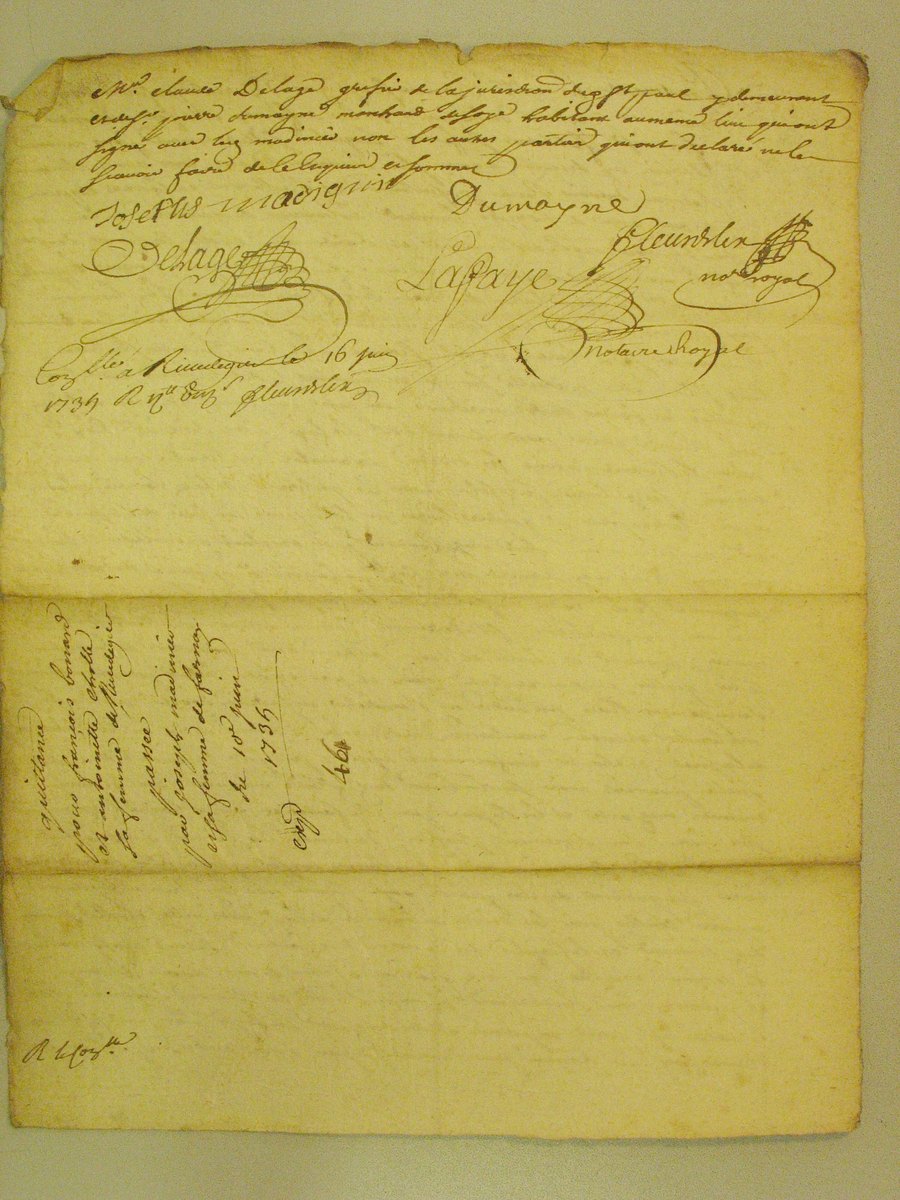 Mr. claude Delage grefié de la jurisdion de St paul y demeurant
pierre dumayne marchand de soye habitant au meme lieu qui ont
signe avec led. madinié non les autres parties qui ont declaré ne le
scavoir faire de ce enquis et sommes
Josephs madignie
Dumayne
Delage
Lafaye
fleurdelix
no.re royal
notaire Royal
Con.llé a Rivedegier le 16 juin
1735 R fleurdelix
quittance
pour françois bonard
et antoinette cholle
sa femme de Rivedegier
passée
par joseph madinier
et sa femme de farnay
du 10e juin
1735
exp.d
46
R le Con.lle